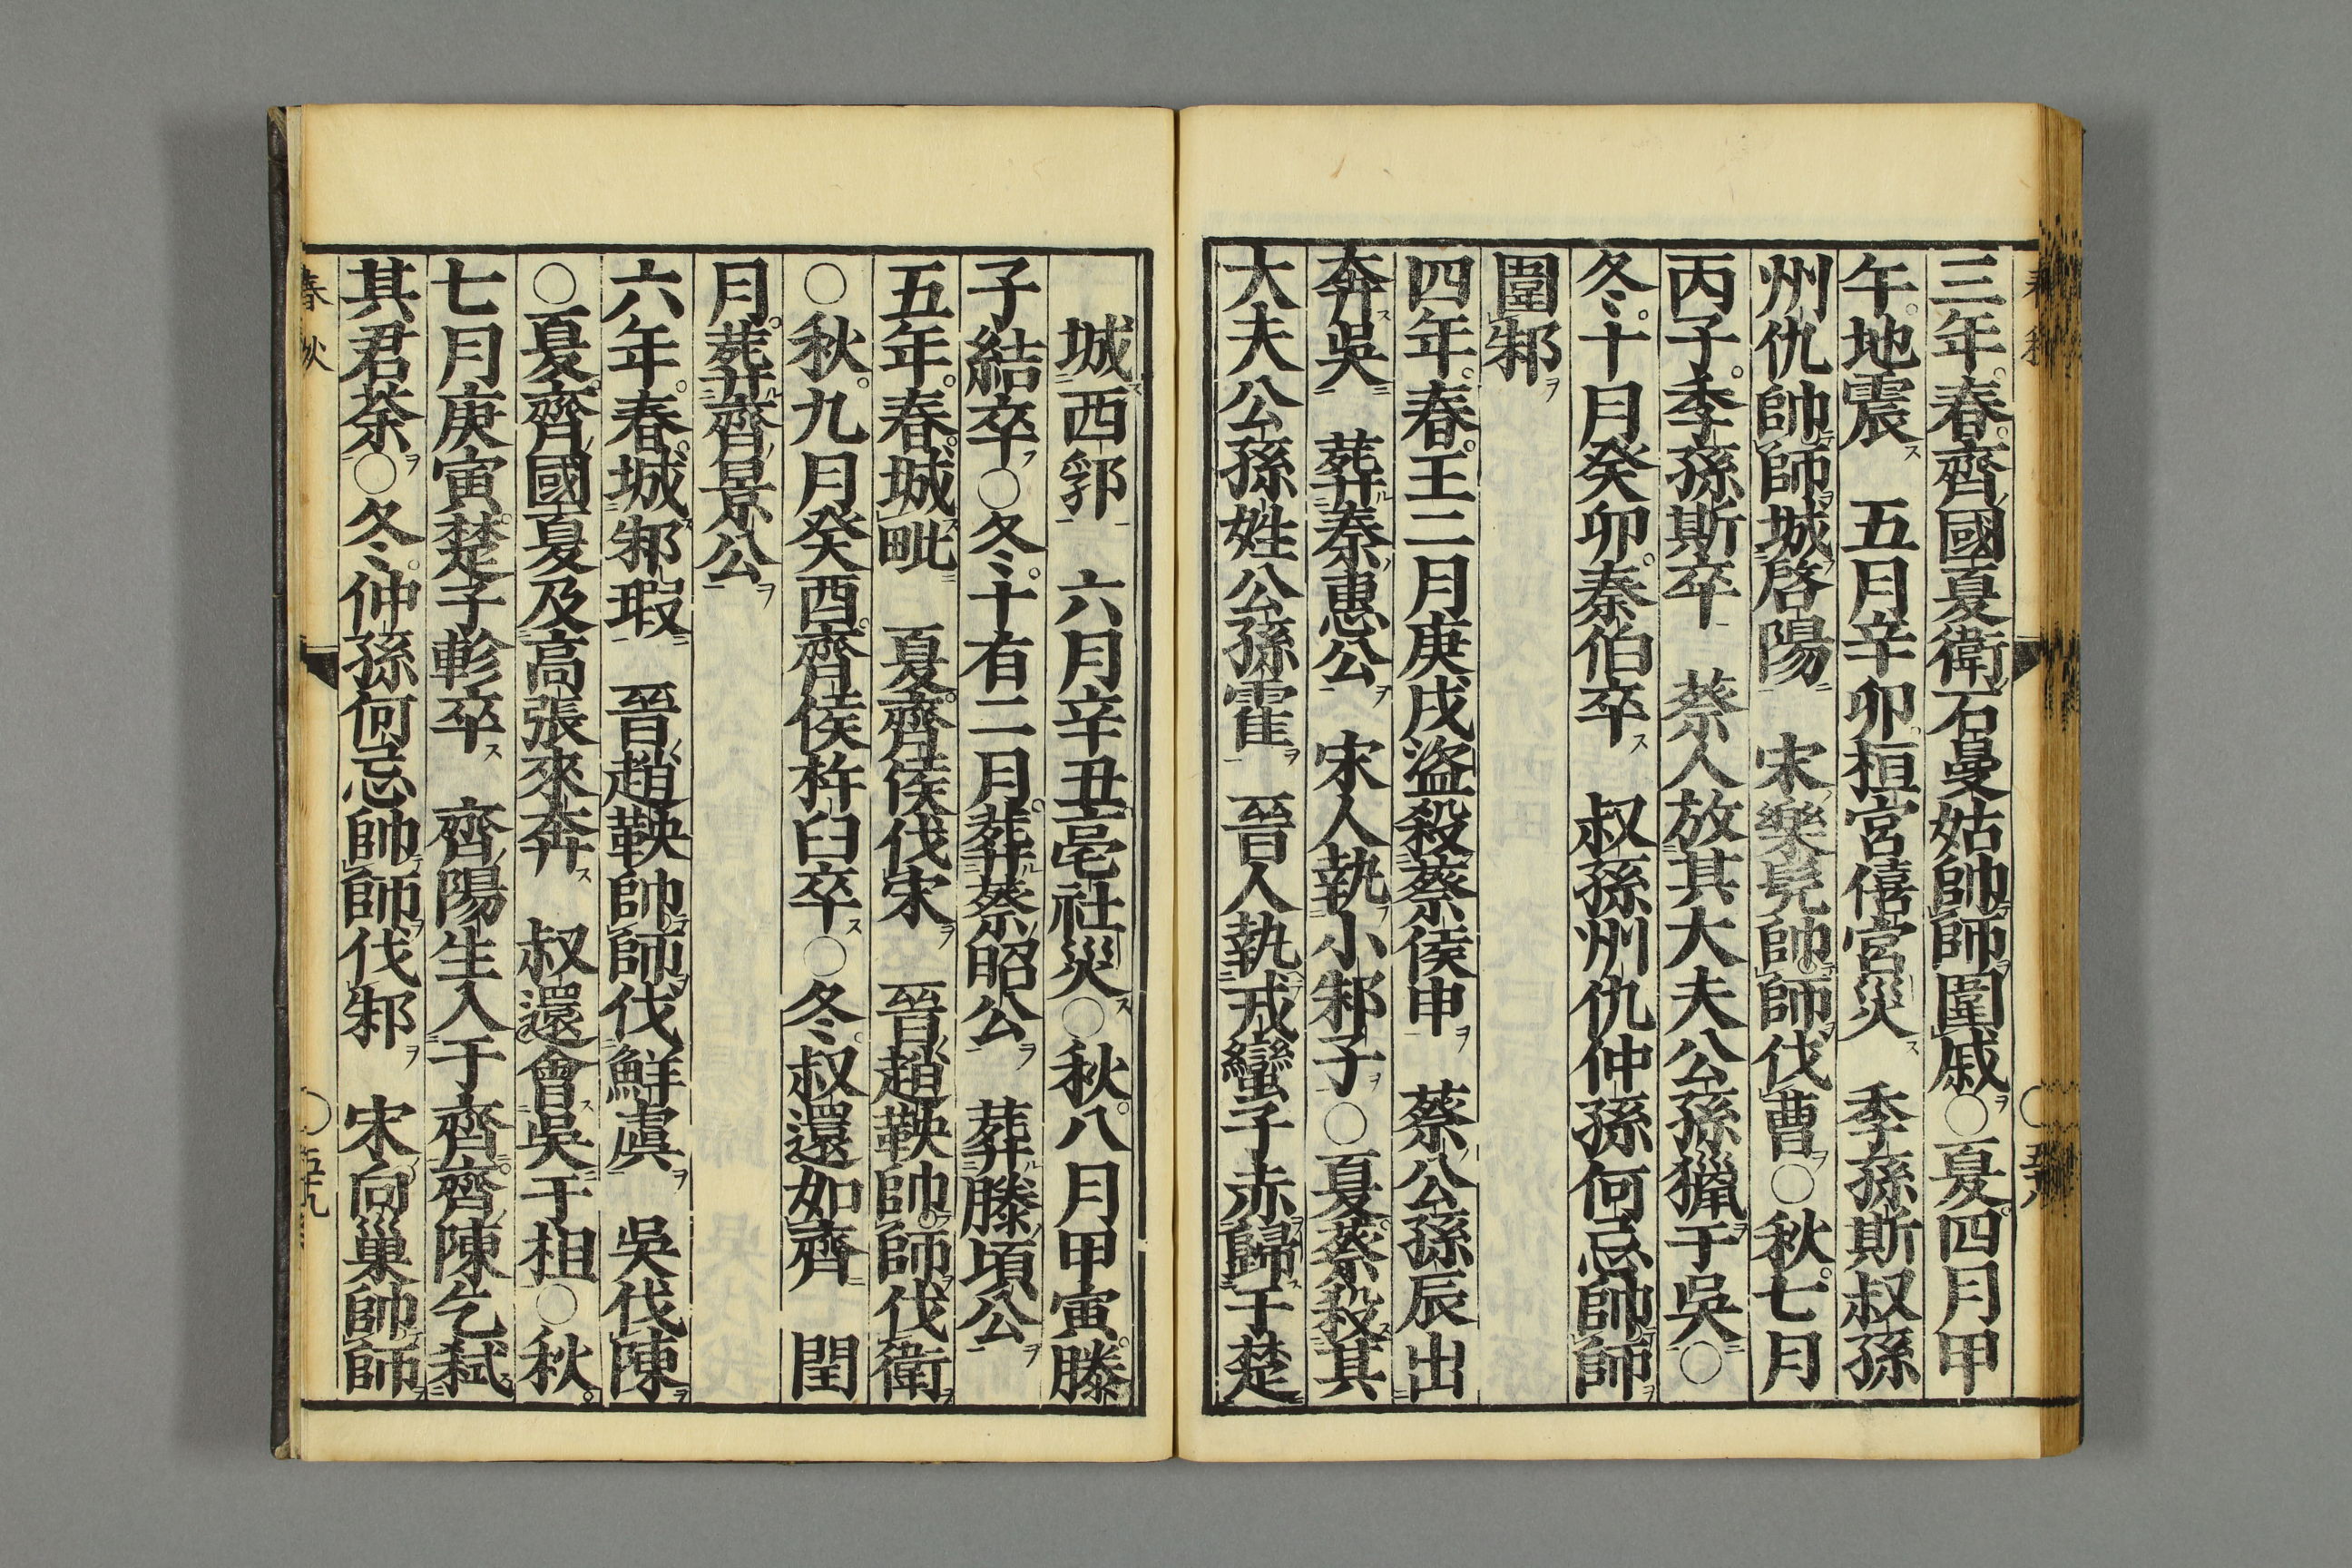 三年春齊國夏衛石曼姑帥師圍戚○夏四月甲
午地震　五月辛卯桓宮僖宮災　季孫斯叔孫
州仇帥師城啓陽　宋樂髠帥師伐曹○秋七月
丙子季孫斯卒　蔡人放其大夫公孫獵于吳○
冬十月癸卯秦伯卒　叔孫州仇仲孫何忌帥師
圍邾
四年春王二月庚戌盜殺蔡侯申　蔡公孫辰出
奔吳　葬秦惠公　宋人執小邾子○夏蔡殺其
大夫公孫姓公孫霍　晉人執戎蠻子赤歸于楚
城西郛　六月辛丑亳社災○秋八月甲寅滕
子結卒○冬十有二月葬蔡昭公　葬滕頃公
五年春城毗　夏齊侯伐宋　晉趙鞅帥師伐衛
○秋九月癸酉齊侯杵臼卒○冬叔還如齊　閏
月葬齊景公
六年春城邾瑕　晉趙鞅帥師伐鮮虞　吳伐陳
○夏齊國夏及高張來奔　叔還會吳于柤○秋
七月庚寅楚子軫卒　齊陽生入于齊齊陳乞弒
其君荼○冬仲孫何忌帥師伐邾　宋向巢帥師
春秋
○五十九